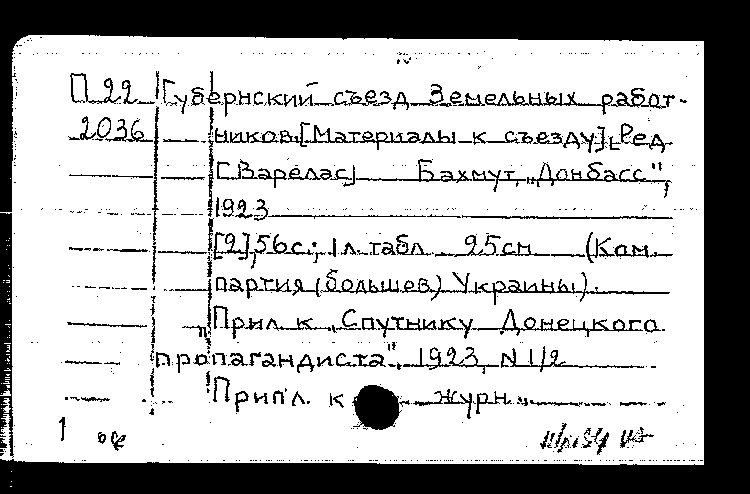 П 22 Губернский съезд Земельных работ-
2036 ников. [Материалы к съезду]. [Ред.
Г. Варелас] Бахмут, „Донбасс",
1923
[2], 56 с.; 1 л. табл. 25 см (Ком.
партия (большев.) Украины).
„Прил. к „Спутнику Донецкого
пропагандиста", 1923, N 1/2
Припл. к журн.
1